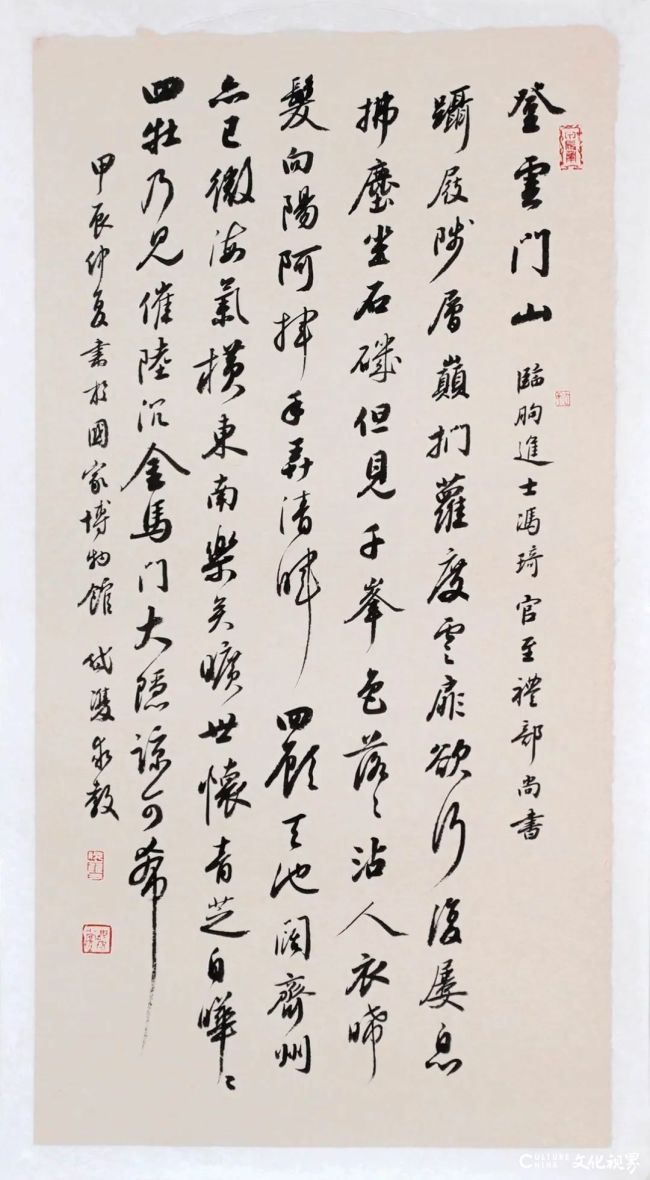 登雲門山 臨朐進士馮琦官至禮部尚書
躡屐陟層巔捫蘿度雲扉欲行復屢息
拂塵坐石磯但見千峯色落〻沾人衣晞
髮向陽阿揮手弄清暉 四顧天池闊齊州
亦已微海氣橫東南樂矣曠世懷青芝自曄〻
四牡乃見催陸沉金馬門大隱諒可希
甲辰仲夏書於國家博物館 雙求教
CULTURE CHINA 文化视界